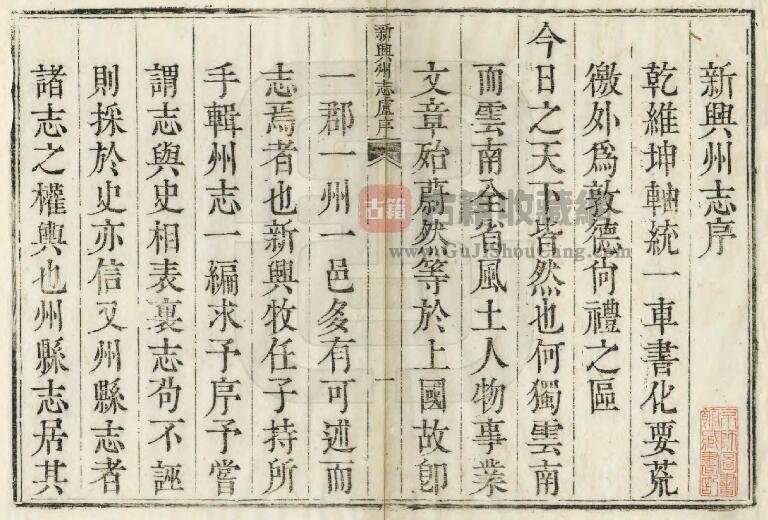 新興州志序
乾維坤軸統一車書化要荒
徼外爲敦德尙禮之區
今日之天下皆然也何獨雲南
而雲南全省風土人物事業
文章殆蔚然等於上國故卽
新興州志盧序
一
一郡一州一邑多有可述而
志焉者也新興牧任子持所
手輯州志一編求予序予嘗
謂志與史相表裏志茍不誣
則採於史亦信又州縣志者
諸志之權輿也州縣志居其
古籍
古籍收藏網
www.GuJiShouCang.com
京師圖書
館藏書記